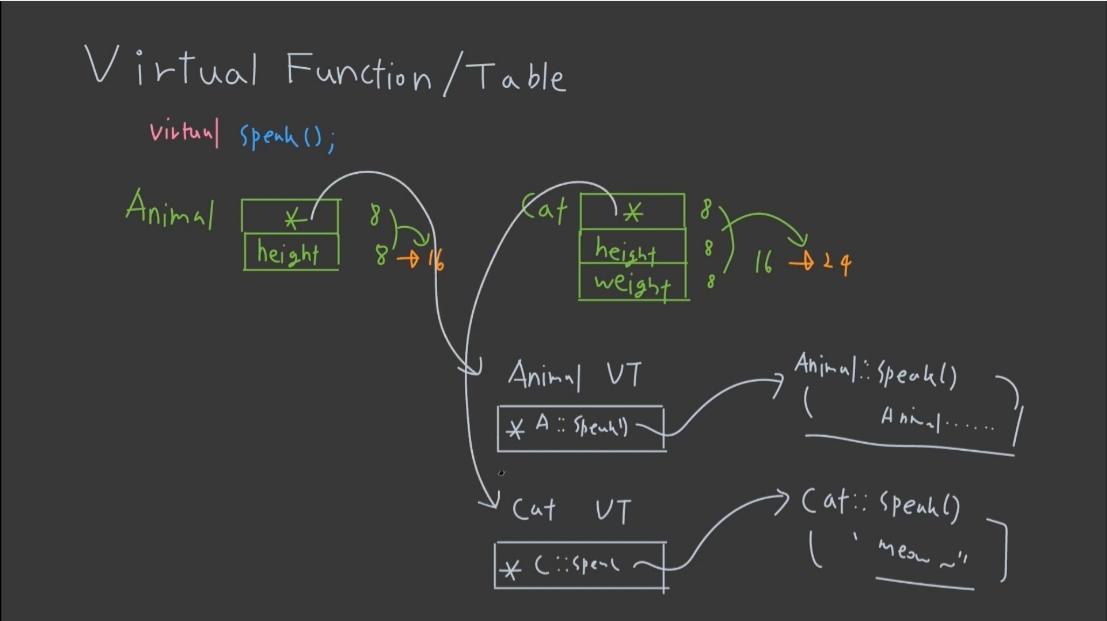 Virtual Function/Table
virtual speak();
Animal
*
height
8
8 → 16
Cat
*
height
weight
8
8
8
16 → 24
Animal VT
* A::speak()
Animal::speak()
Animal......
Cat VT
* C::speak
Cat::speak()
" meow ~"